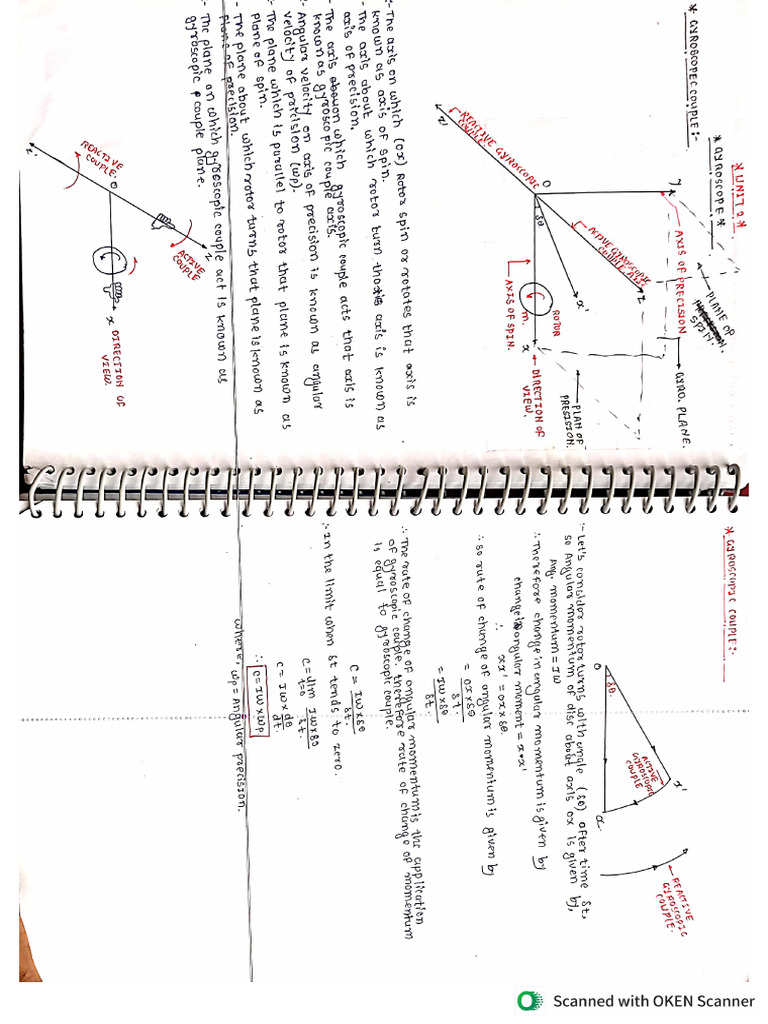 * UNIT 2 *
* GYROSCOPE *
* GYROSCOPEC COUPLE:-
PLANE OF
SPIN.
GYRO. PLANE.
AXIS OF PRECISION
y
ACTIVE GYROSCOPIC
COUPLE AXIS
z
O
δθ
x'
REACTIVE GYROSCOPIC
COUPLE
z'
ROTOR
m.
AXIS OF SPIN.
x
DIRECTION OF
VIEW.
PLAN OF
PRECISION.
:- The axis on which (ox) Rotor spin or rotates that axis is
known as axis of spin.
- The axis about which rotor burn axis is known as
axis of precision.
- The axis which gyroscopic couple acts that axis is
known as gyroscopic couple axis.
:- Angular velocity on axis of precision is known as angular
velocity of precision (wp).
:- The plane which is parallel to rotor that plane is known as
plane of spin.
- The plane about which rotor turns that plane is known as
plane of precision.
:- The plane on which gyroscopic couple act is known as
gyroscopic couple plane.
REACTIVE
COUPLE.
z'
O
ACTIVE
COUPLE
z
x
DIRECTION OF
VIEW.
* GYROSCOPIC COUPLE:-
O
δθ
x'
x
ACTIVE
GYROSCOPIC
COUPLE
REACTIVE
GYROSCOPIC
COUPLE.
:- Let's considor rotor turns with angle (δθ) after time δt,
so Angular momentum of disc about axis ox is given by,
Ang. momentum = Iω
∴ Therefore change in angular momentum is given by
change angular moment = x-x'
∴ xx' = ox x δθ
∴ so rate of change of angular momentum is given by
= ox x δθ / δt.
= Iω x δθ / δt.
∴ The rate of change of angular momentum is the application
of gyroscopic couple. therefore rate of change of momentum
is equal to gyroscopic couple.
C = Iω x δθ / δt.
:- In the limit when δt tends to zero.
C = lim t=0 Iω x δθ / δt.
C = Iω x dθ / dt.
∴ C = Iω x ωp.
where, ωp = Angular precision.
Scanned with OKEN Scanner